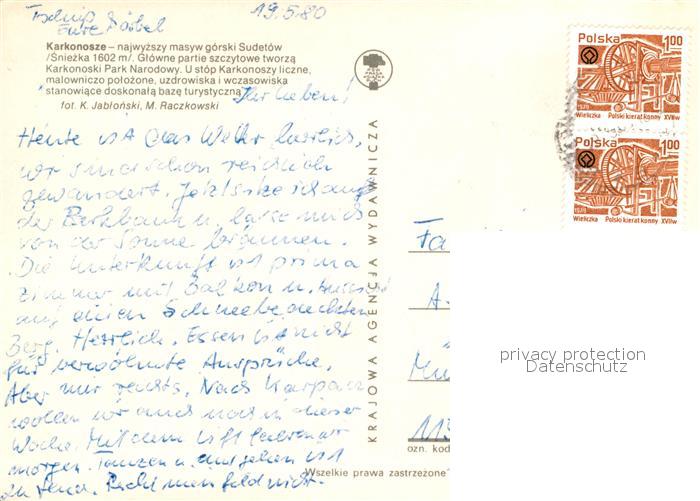 Tschüß
Eure Bärbel
19.5.80
Karkonosze – najwyższy masyw górski Sudetów
/Śnieżka 1602 m/. Główne partie szczytowe tworzą
Karkonoski Park Narodowy. U stóp Karkonoszy liczne,
malowniczo położone, uzdrowiska i wczasowiska
stanowiące doskonałą bazę turystyczną
fot. K. Jabłoński, M. Raczkowski
Ihr Lieben!
Heute ist das Wetter herrlich,
wir sind schon reichlich
gewandert. Jetzt sitze ich auf
der Parkbank u. lasse mich
von der Sonne bräunen.
Die Unterkunft ist prima
Zimmer mit Balkon u.
auf einen Schneebedeckten
Berg. Herrlich. Essen ist nicht
für verwöhnte Ansprüche,
Aber mir reichts. Nach Karpacz
wollen wir auch noch in dieser
Woche. Mit dem Lift fahren wir
morgen. Tanzen u. ausgehen ist
zu teuer. Reicht mein Geld nicht.
KRAJOWA AGENCJA WYDAWNICZA
Polska 1.00
1979
Wieliczka Polski kierat konny XVII w
Polska 1.00
1979
Wieliczka Polski kierat konny XVII w
Fa
A.
Mü
113
ozn. kod
Wszelkie prawa zastrzeżone
privacy protection
Datenschutz